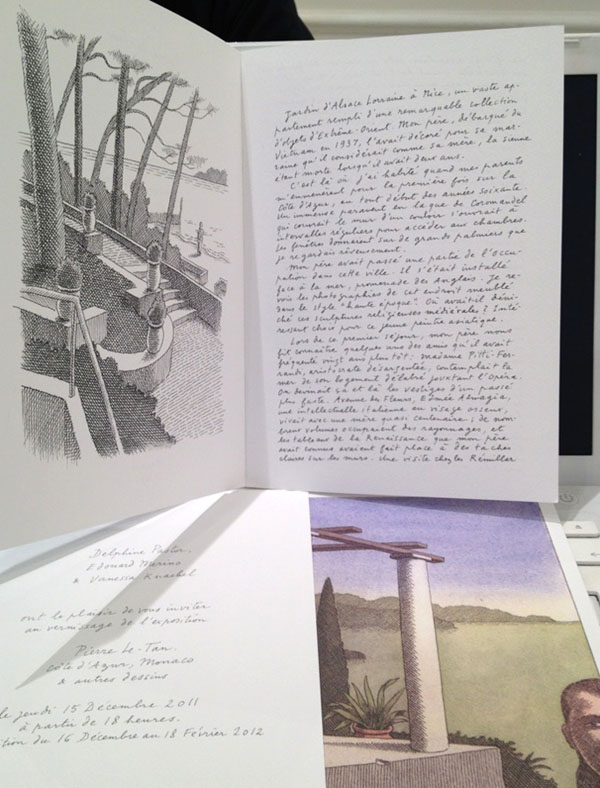 Jardin d'Alsace Lorraine à Nice, un vaste ap-
partement rempli d'une remarquable collection
d'objets d'Extrême-Orient. Mon père, débarqué du
Vietnam en 1937, l'avait décoré pour sa mar-
raine qu'il considérait comme sa mère, la sienne
étant morte lorsqu'il avait deux ans.
C'est là où j'ai habité quand mes parents
m'emmenèrent pour la première fois sur la
Côte d'Azur, en tout début des années soixante.
Un immense paravent en laque de Coromandel
qui couvrait le mur d'un couloir s'ouvrait à
intervalles réguliers pour accéder aux chambres.
Les fenêtres donnaient sur de grands palmiers que
je regardais rêveusement.
Mon père avait passé une partie de l'occu-
pation dans cette ville. Il s'était installé
face à la mer, promenade des Anglais. Je re-
vois les photographies de cet endroit meublé
dans le style "haute époque". Où avait-il déni-
ché ces sculptures religieuses médiévales? Inté-
ressant choix pour ce jeune peintre asiatique.
Lors de ce premier séjour, mon père nous
fit connaître quelques uns des amis qu'il avait
fréquenté vingt ans plus tôt: madame Pitti-Fer-
randi, aristocrate désargentée, contemplait la
mer de son logement délabré jouxtant l'Opéra.
On devinait çà et là les vestiges d'un passé
plus faste. Avenue des Fleurs, Edmée
une intellectuelle italienne au visage osseux,
vivait avec une mère quasi centenaire; de nom-
breux volumes occupaient des rayonnages, et
les tableaux de la Renaissance que mon père
avait connus avaient fait place à des taches
claires sur les murs. Une visite chez les
Delphine Pastor,
Edouard Merino
& Vanessa Knaebel
ont le plaisir de vous inviter
au vernissage de l'exposition
Pierre Le-Tan
Côte d'Azur, Monaco
& autres dessins
le jeudi 15 Décembre 2011
à partir de 18 heures.
tion du 16 Décembre au 18 Février 2012